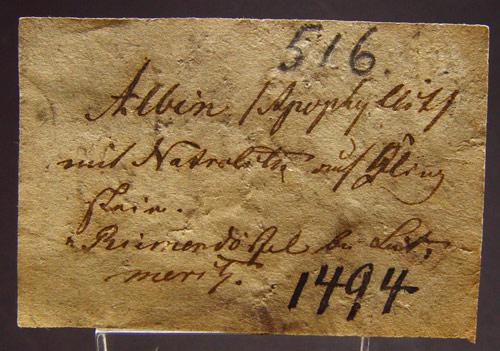 516.
Albin /Apophyllit/
mit Natrolith auf Kling
stein.
bei Leit,
meritz.
1494